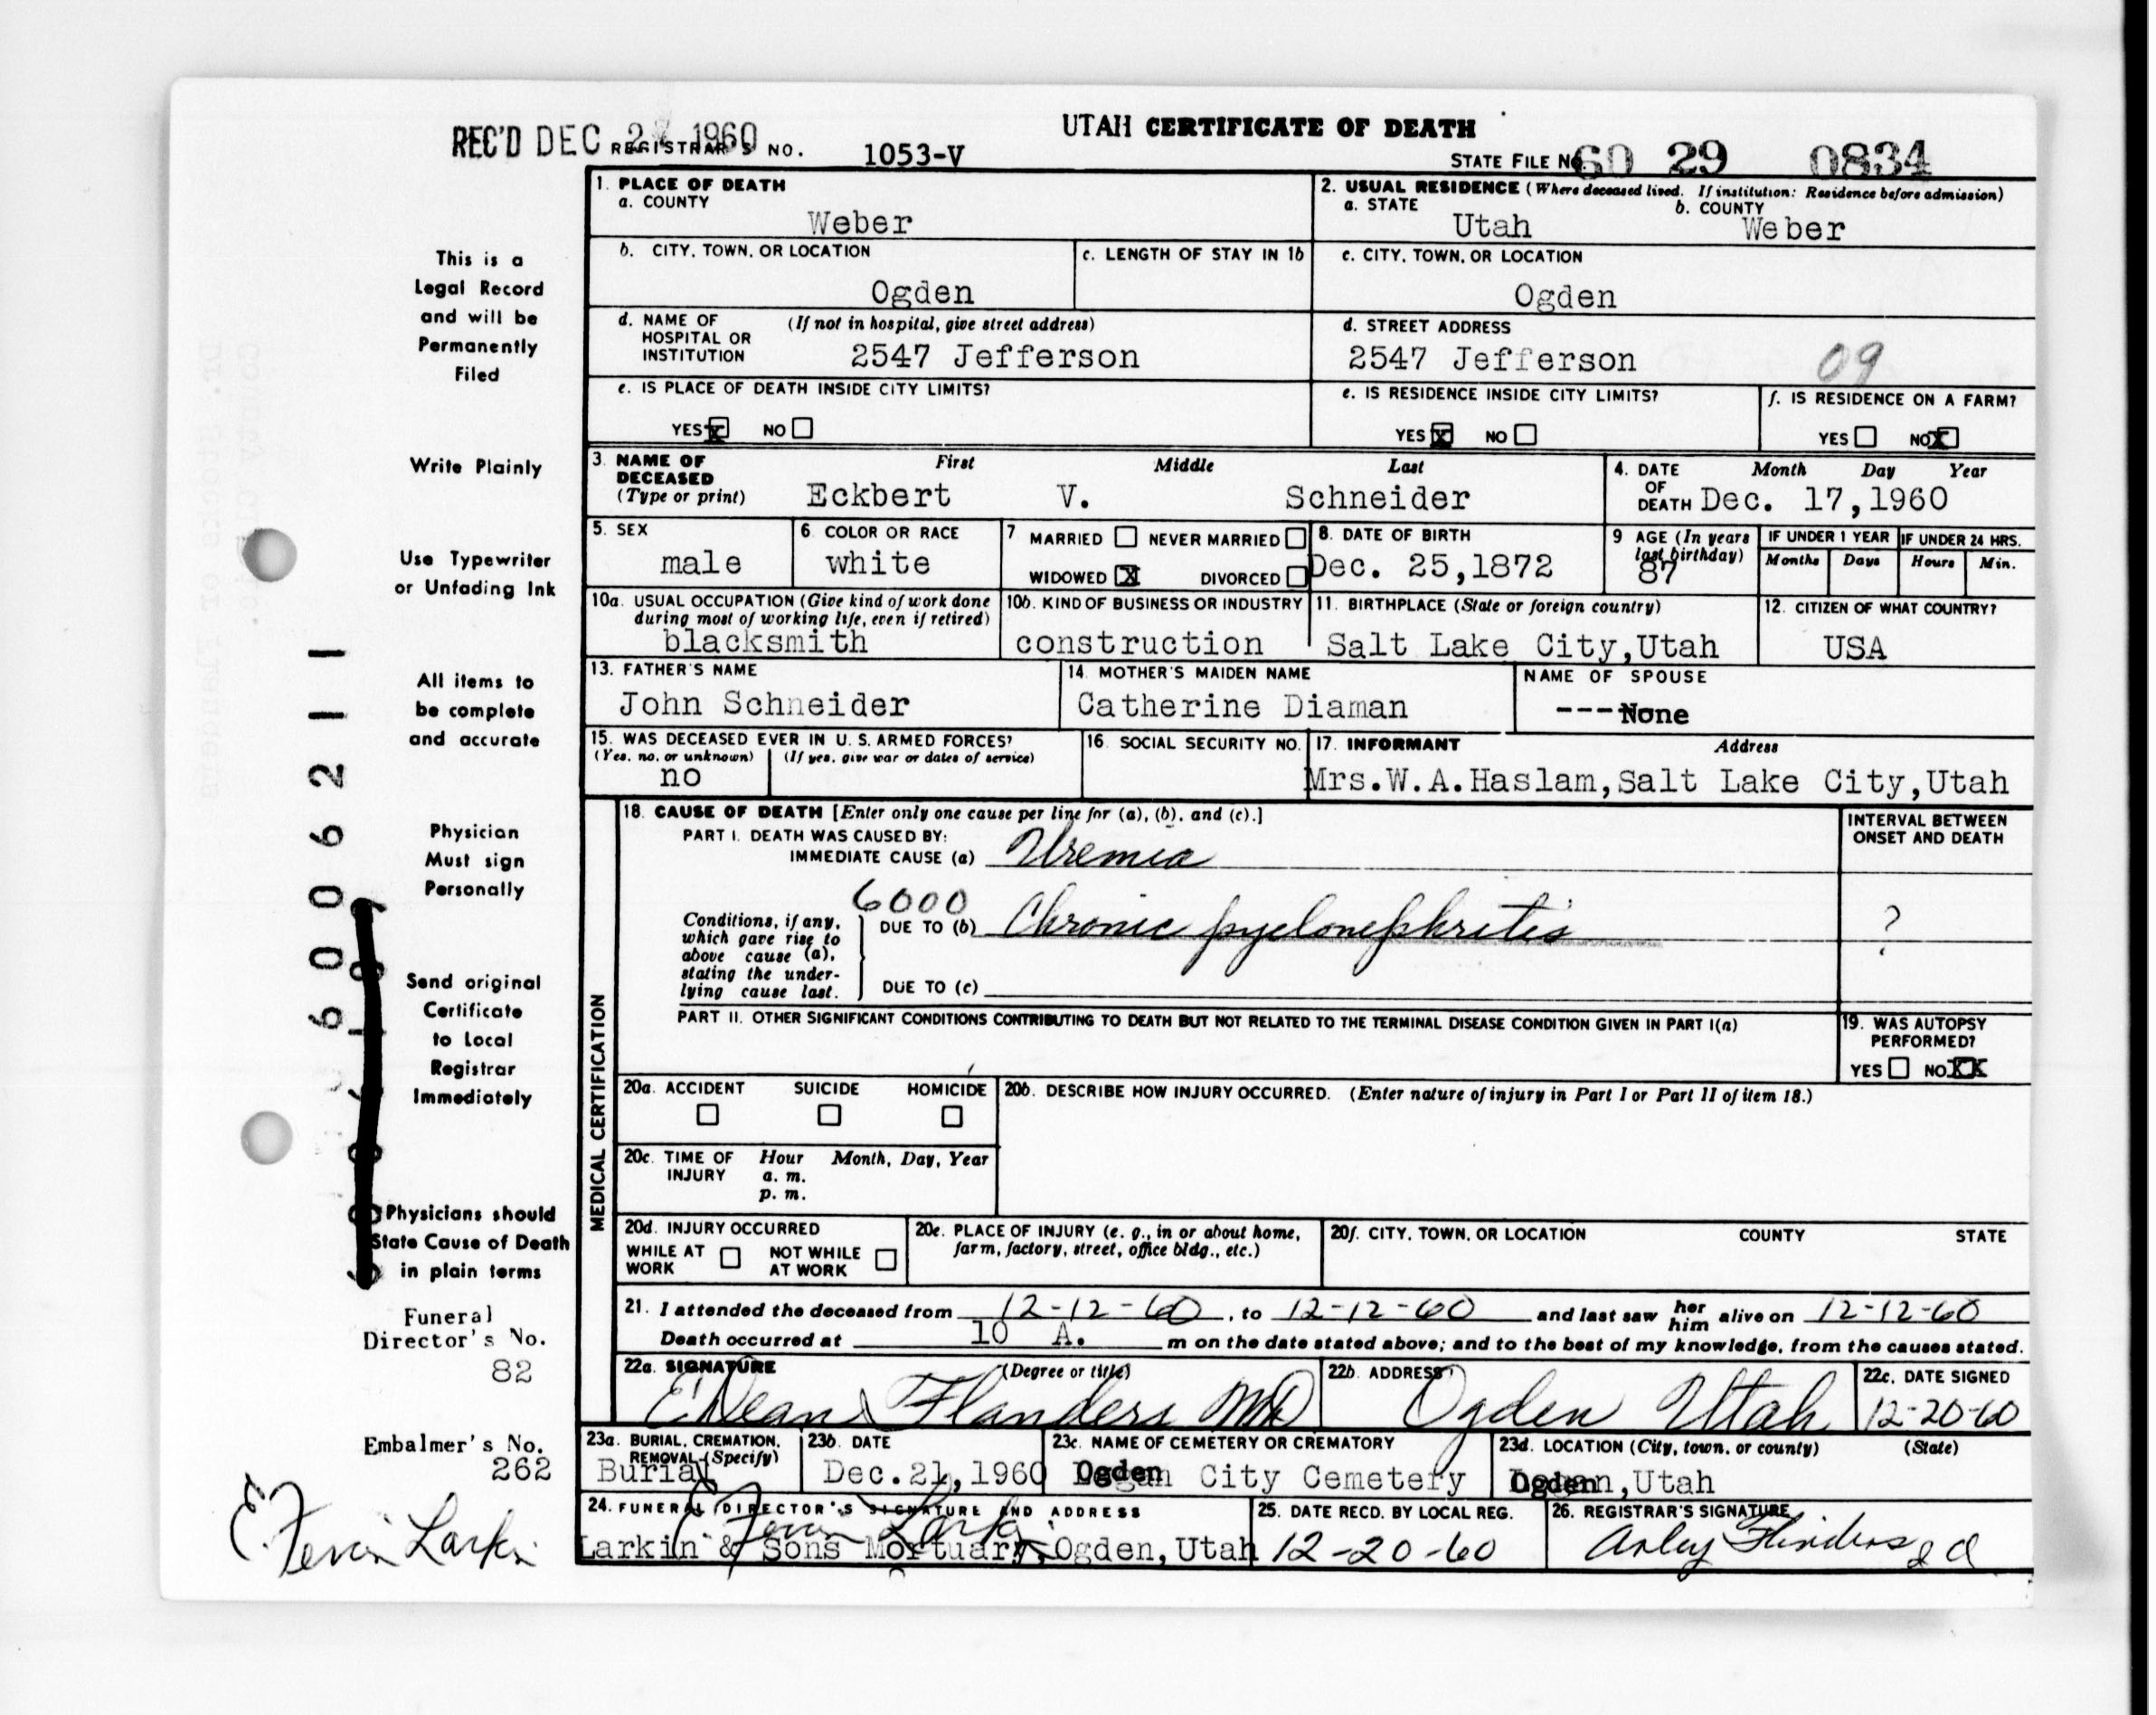 UTAH CERTIFICATE OF DEATH
REC'D DEC 2 1960 REGISTRAR'S NO. 1053-V
STATE FILE NO. 60 29 0834
1. PLACE OF DEATH
a. COUNTY
Weber
2. USUAL RESIDENCE (Where deceased lived. If institution: Residence before admission)
a. STATE b. COUNTY
Utah Weber
b. CITY, TOWN, OR LOCATION
Ogden
c. LENGTH OF STAY IN 1b
c. CITY, TOWN, OR LOCATION
Ogden
d. NAME OF (If not in hospital, give street address)
HOSPITAL OR
INSTITUTION 2547 Jefferson
d. STREET ADDRESS
2547 Jefferson 09
e. IS PLACE OF DEATH INSIDE CITY LIMITS?
YES X NO
e. IS RESIDENCE INSIDE CITY LIMITS?
YES X NO
f. IS RESIDENCE ON A FARM?
YES NO X
3. NAME OF First Middle Last
DECEASED
(Type or print) Eckbert V. Schneider
4. DATE Month Day Year
OF
DEATH Dec. 17,1960
5. SEX
male
6. COLOR OR RACE
white
7 MARRIED NEVER MARRIED
WIDOWED X DIVORCED
8. DATE OF BIRTH
Dec. 25,1872
9 AGE (In years
last birthday)
87
IF UNDER 1 YEAR IF UNDER 24 HRS.
Months Days Hours Min.
10a. USUAL OCCUPATION (Give kind of work done
during most of working life, even if retired)
blacksmith
10b. KIND OF BUSINESS OR INDUSTRY
construction
11. BIRTHPLACE (State or foreign country)
Salt Lake City,Utah
12. CITIZEN OF WHAT COUNTRY?
USA
13. FATHER'S NAME
John Schneider
14. MOTHER'S MAIDEN NAME
Catherine Diaman
NAME OF SPOUSE
---None
15. WAS DECEASED EVER IN U. S. ARMED FORCES?
(Yes, no, or unknown) (If yes, give war or dates of service)
no
16. SOCIAL SECURITY NO.
17. INFORMANT Address
Mrs.W.A.Haslam,Salt Lake City,Utah
MEDICAL CERTIFICATION
18. CAUSE OF DEATH [Enter only one cause per line for (a), (b), and (c).]
PART I. DEATH WAS CAUSED BY:
IMMEDIATE CAUSE (a) Uremia
INTERVAL BETWEEN
ONSET AND DEATH
6000
Conditions, if any,
which gave rise to
above cause (a),
stating the under-
lying cause last.
DUE TO (b) Chronic pyelonephritis ?
DUE TO (c)
PART II. OTHER SIGNIFICANT CONDITIONS CONTRIBUTING TO DEATH BUT NOT RELATED TO THE TERMINAL DISEASE CONDITION GIVEN IN PART I(a)
19. WAS AUTOPSY
PERFORMED?
YES NO XX
20a. ACCIDENT SUICIDE HOMICIDE
20b. DESCRIBE HOW INJURY OCCURRED. (Enter nature of injury in Part I or Part II of item 18.)
20c. TIME OF Hour Month, Day, Year
INJURY a. m.
p. m.
20d. INJURY OCCURRED
WHILE AT NOT WHILE
WORK AT WORK
20e. PLACE OF INJURY (e. g., in or about home,
farm, factory, street, office bldg., etc.)
20f. CITY, TOWN, OR LOCATION COUNTY STATE
21. I attended the deceased from 12-12-60, to 12-12-60 and last saw her him alive on 12-12-60
Death occurred at 10 A. m on the date stated above; and to the best of my knowledge, from the causes stated.
22a. SIGNATURE (Degree or title)
E Dean Flanders MD
22b. ADDRESS
Ogden Utah
22c. DATE SIGNED
12-20-60
23a. BURIAL, CREMATION,
REMOVAL (Specify)
Burial
23b. DATE
Dec.21,1960
23c. NAME OF CEMETERY OR CREMATORY
Ogden City Cemetery
23d. LOCATION (City, town, or county) (State)
Ogden,Utah
24. FUNERAL DIRECTOR'S SIGNATURE AND ADDRESS
Larkin & Sons Mortuary,Ogden,Utah
25. DATE RECD. BY LOCAL REG.
12-20-60
26. REGISTRAR'S SIGNATURE
This is a
Legal Record
and will be
Permanently
Filed
Write Plainly
Use Typewriter
or Unfading Ink
All items to
be complete
and accurate
Physician
Must sign
Personally
Send original
Certificate
to Local
Registrar
Immediately
Physicians should
State Cause of Death
in plain terms
Funeral
Director's No.
82
Embalmer's No.
262
Larkin
60062 1 1